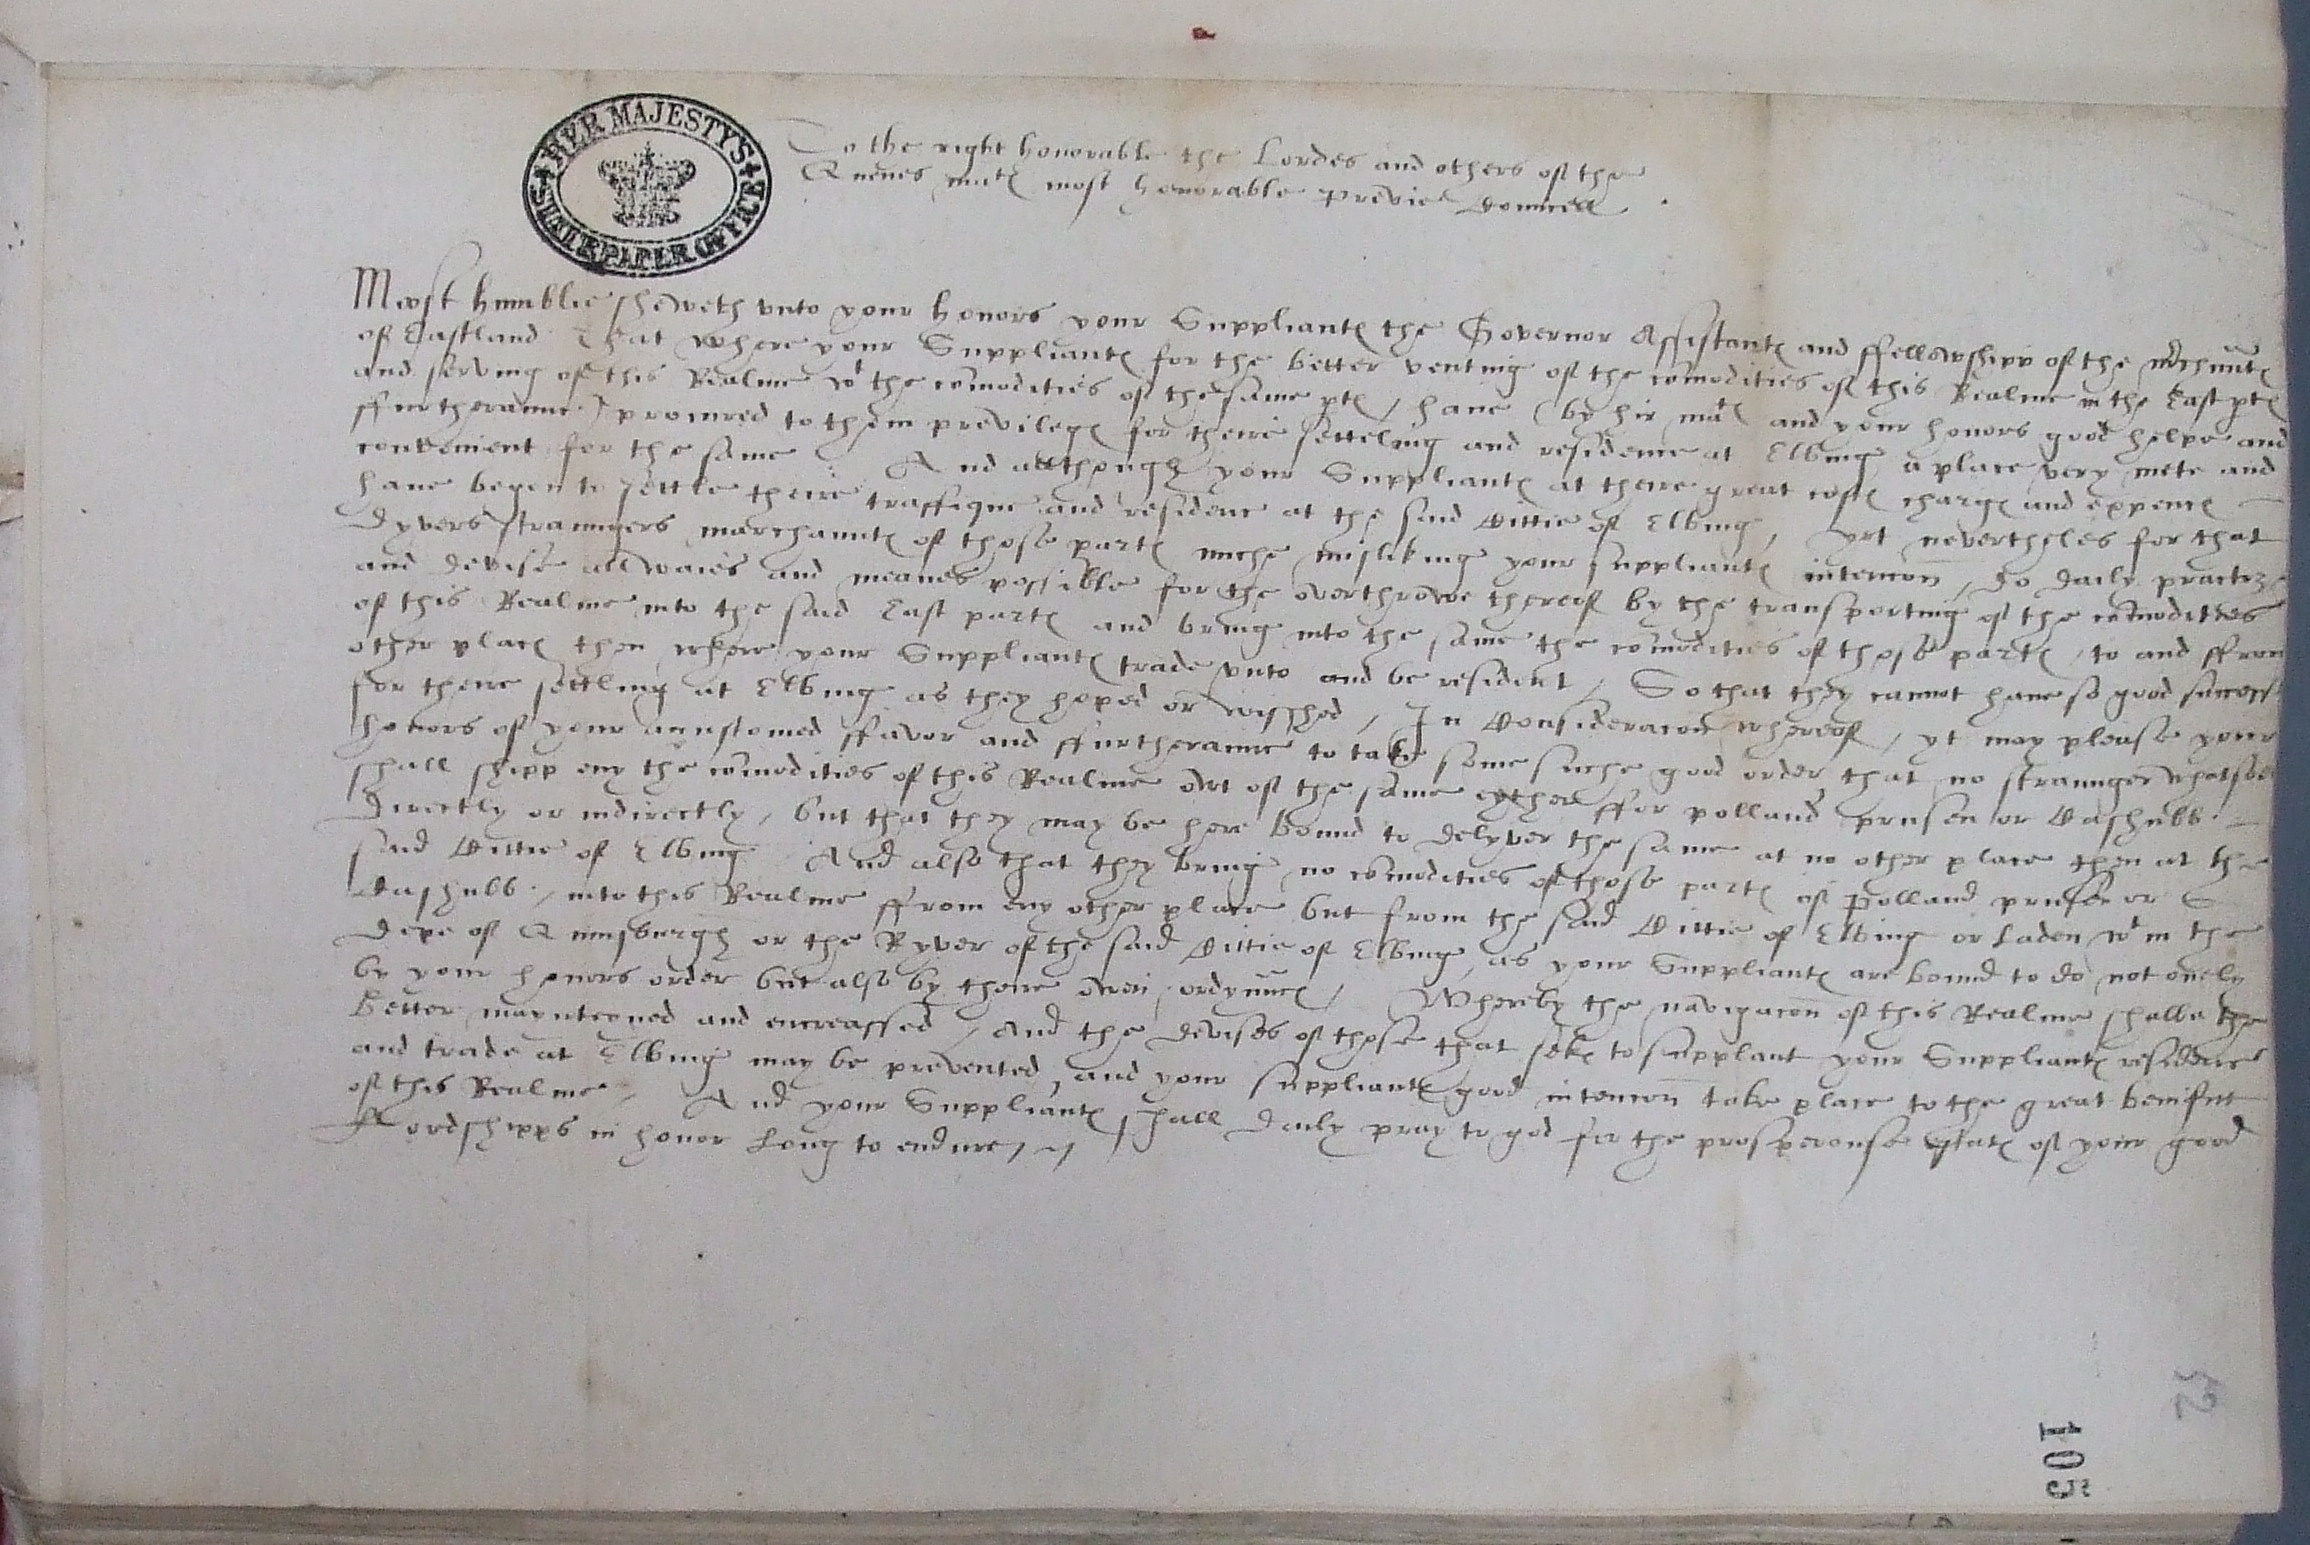 HER MAJESTYS STATE PAPER OFFICE
To the right honorable the Lordes and others of the
Quenes matℯ most honorable previe Counsell.
Most humblie sheweth vnto your honors your Suppliantℯ the Governor Assistantℯ and ffellowshipp of the mrchantℯ
of Eastland That where your Suppliantℯ for the better venting of the comodities of this Realme in the East ptℯ
and serving of this Realme wt the comodities of the same ptℯ, have (by hir matℯ and your honors good helpe and
ffurtheraunce) procured to them previlegℯ for theire setteling and residence at Elbing a place very mete and
convenient for the same. And allthough your Suppliantℯ at theire great costℯ chargℯ and expencℯ
have begon to settle theire traffique and residenc at the said Cittie of Elbing, yet nevertheles for that
dyvers straungers marchauntℯ of those partℯ muche misliking your suppliantℯ intencon, do daily practize
and devise all waies and meanes possible for the overthrowe thereof by the transporting of the comodities
of this Realme into the said East partℯ and bring into the same the comodities of those partℯ, to and ffrom
other placℯ then where your Suppliantℯ trade vnto and be resident, So that they cannot have so good successe
for theire settling at Elbing as they hoped or wisshed, In Consideracon whereof, yt may please your
honors of your accustomed ffavor and ffurtheraunce to take some suche good order that no straunger whatsoever
shall shipp eny the comodities of this Realme owt of the same eyther ffor polland prusen or Cashubb.
directly or indirectly, but that they may be here bound to delyver the same at no other place then at the
said Cittie of Elbing And also that they bring no comodities of those partℯ of Polland prusse or
Cashubb., into this Realme ffrom eny other place but from the said Cittie of Elbing or laden wt in the
depe of Quinsburgh or the Ryver of the said Cittie of Elbing, as your Suppliantℯ are bound to do not onely
by your honors order but also by theire owen ordynncℯ, Whereby the navigacon of this Realme shalbe the
better maynteyned and encreassed, And the devises of those that sekℯ to supplant your Suppliantℯ residence
and trade at Elbing may be prevented, and your suppliantℯ good intencon take place to the great benifitt
of this Realme, And your Suppliantℯ shall daily pray to god for the prosperouse estatℯ of your good
Lordshipps in honor long to endure
52
105